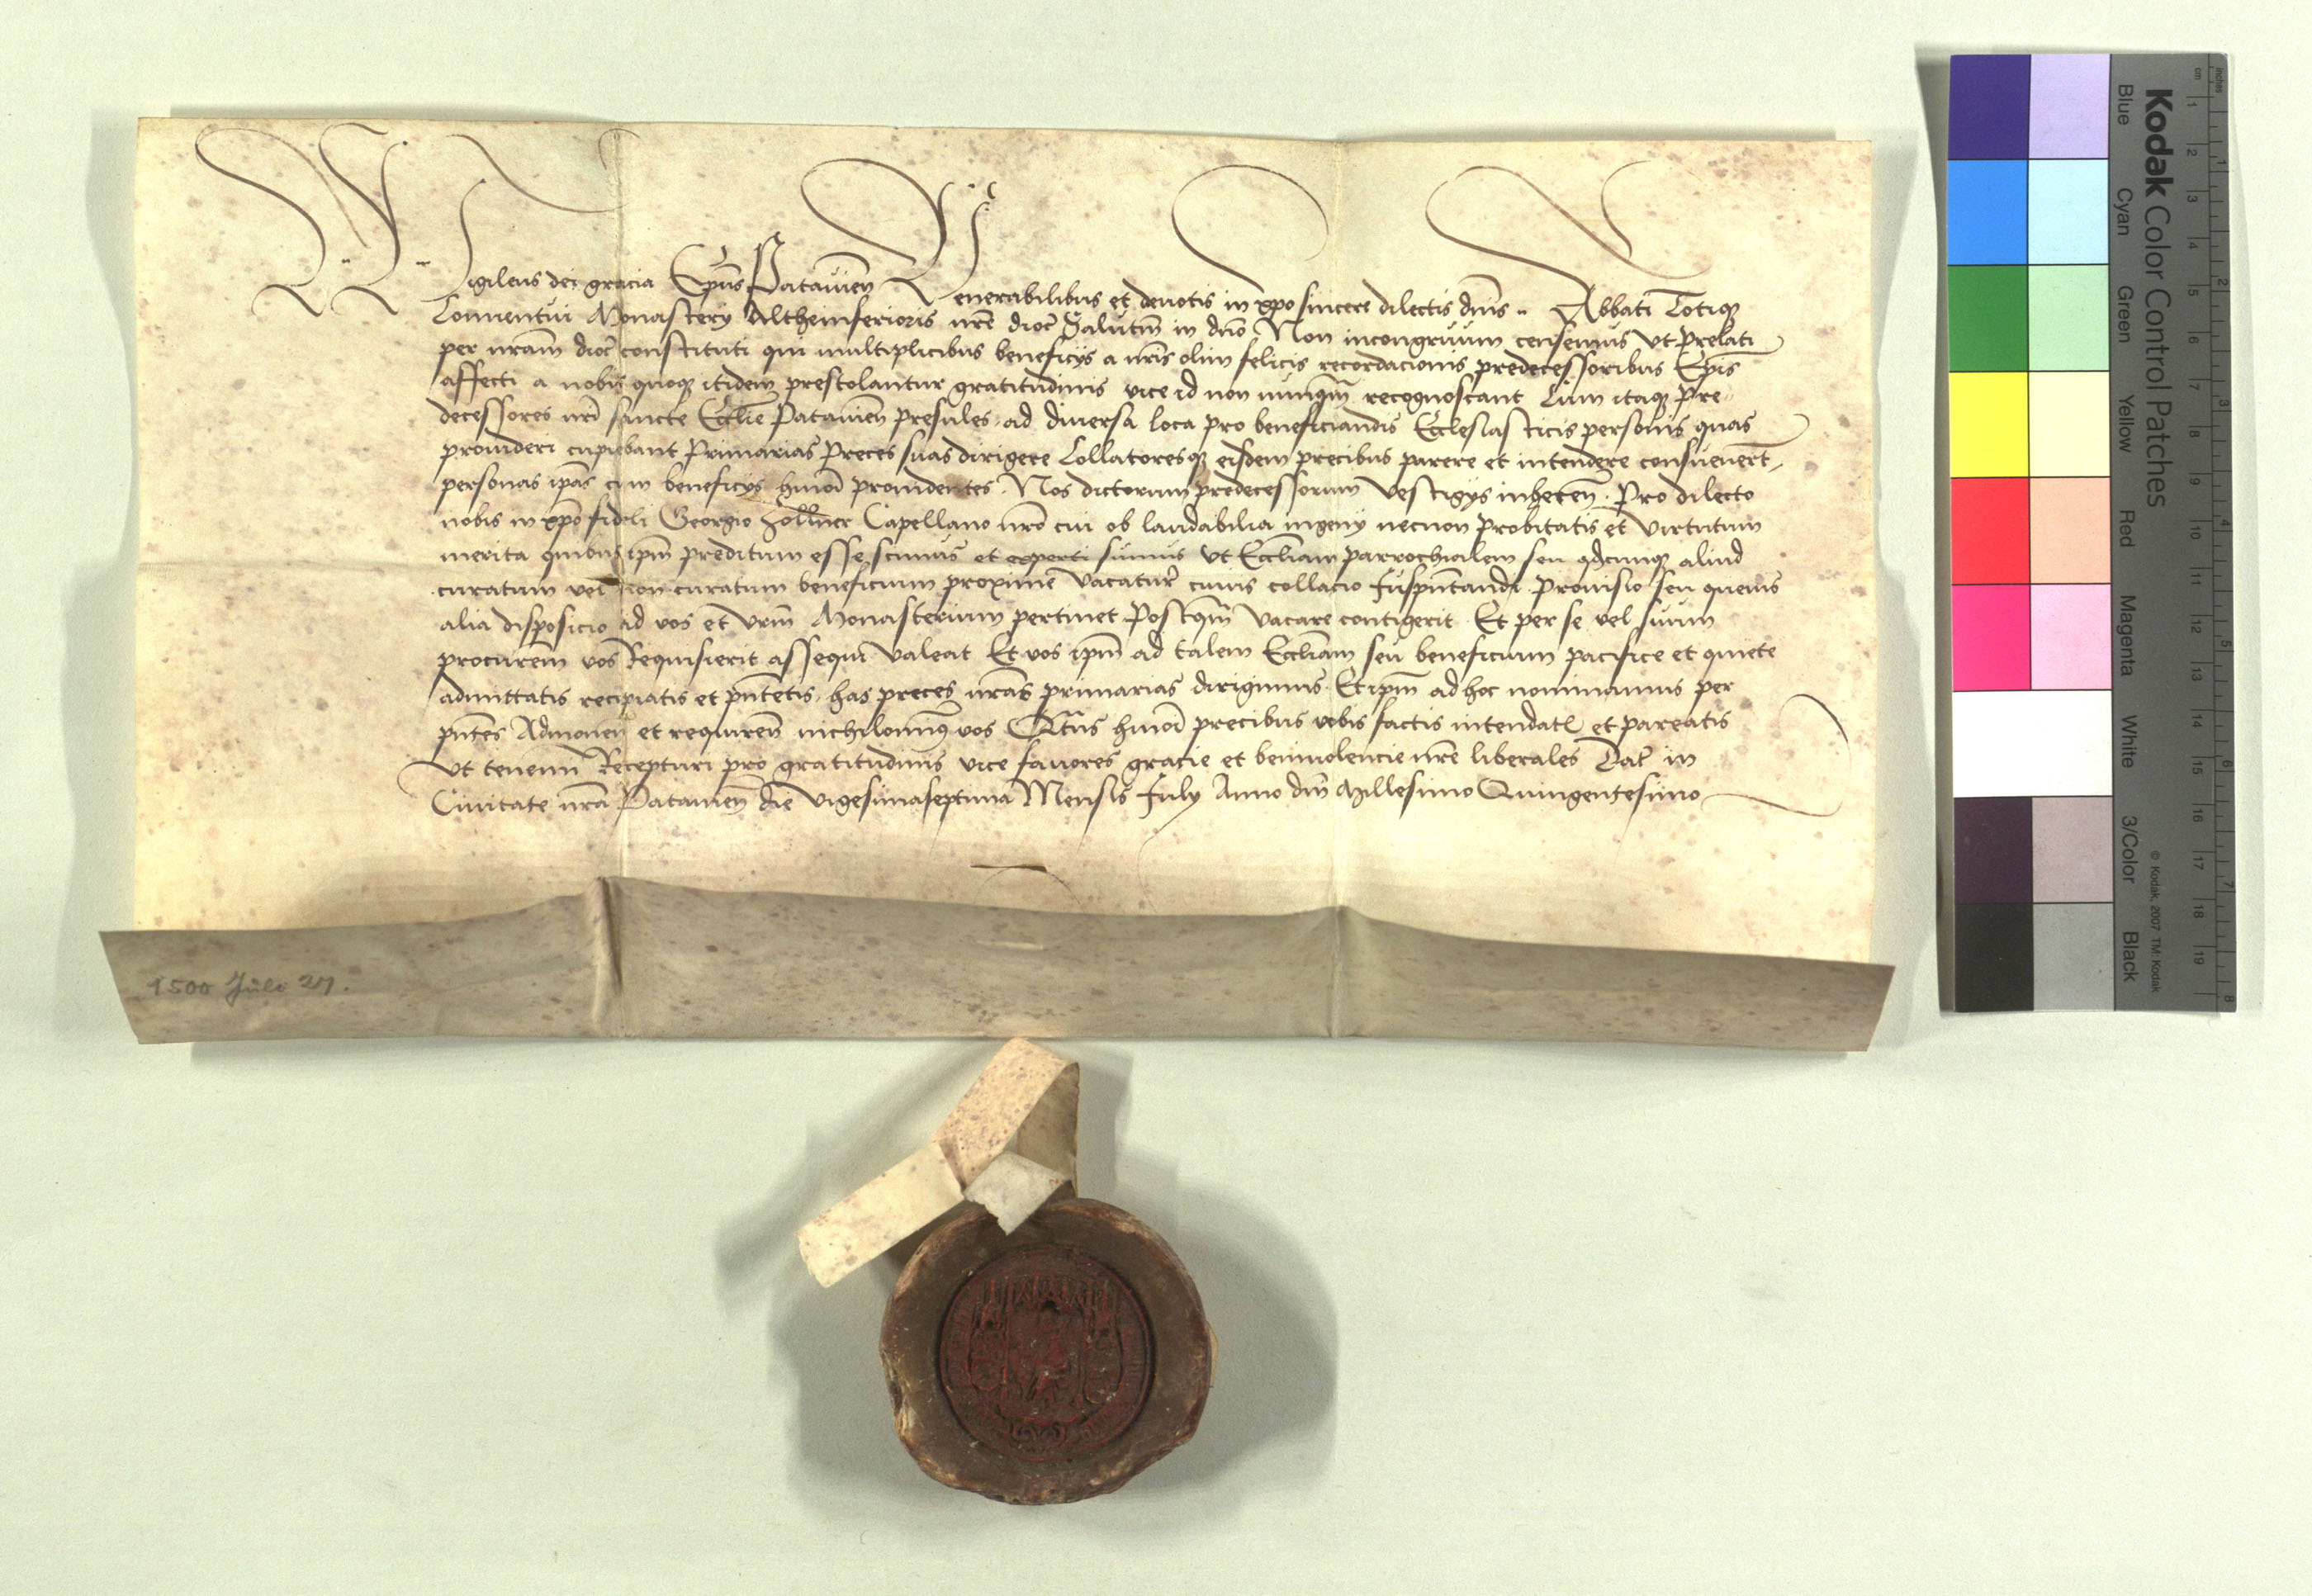 Wigileus dei gracia Epũs Patauieñ Venerabilibus et deuotis in xp̃o sincere dilectis dñis .. Abbati Totiqꝫ
Conuentui Monastery Altheinferioris nr̃e dioc̃ Salutem̃ in dño Non incongruum censemus vt Prelati
per nr̃am dioc̃ constituti qui multiplicibus beneficijs a nr̃is olim felicis recordacionis predecessoribus Ep̃is
affecti a nobis quoqꝫ itidem prestolantur gratitudinis vice id non nunqm̃ recognoscant Cum itaqꝫ Pre
decessores nr̃i sancte Eccl̃ie Patauieñ Presules ad diuersa loca pro beneficiandis Ecclesiasticis personis quas
prouideri cupiebant Primarias Preces suas dirigere Collatoresqꝫ eisdem precibus parere et intendere consueuer̃t
personas ip̃as cum beneficijs hmõi prouidentes. Nos dictorum predecessorum vestigijs inhereñ. Pro dilecto
nobis in xp̃o fideli Georgio Zollner Capellano nr̃o cui ob laudabilia ingenij necnon probitatis et virtutum
merita quibus ip̃m preditum esse scimus et experti sumus vt Eccl̃iam parrochialem seu qdcumqꝫ aliud
curatum vel non curatum beneficium proxime vacatur̃ cuius collacio Jusp̃ntandi Prouisio seu queuis
alia disposicio ad vos et vr̃m Monasterium pertinet Postqm̃ vacare contigerit Et per se vel suum
procurem̃ vos Requisierit assequi valeat Et vos ip̃m ad talem Eccl̃iam seu beneficium pacifice et quiete
admittatis recipiatis et p̃ntetis, has preces nr̃as primarias dirigimus Et ip̃m ad hoc nominamus per
p̃ntes Admoneñ et requireñ nichilominꝰ vos Q̃tus hmõi precibus vobis factis intendatꝭ et pareatis
Vt teneminĩ Recepturi pro gratitudinis vice fauores gracie et beniuolencie nr̃e liberales Dat̃ in
Ciuitate nr̃a Patauieñ die vigesimaseptima Mensis July Anno dñi Millesimo Quingentesimo
1500 Juli 27.
Kodak Color Control Patches
Blue Cyan Green Yellow Red Magenta White 3/Color Black
© Kodak, 2007 TM: Kodak
inches 1 2 3 4 5 6 7 8
cm 1 2 3 4 5 6 7 8 9 10 11 12 13 14 15 16 17 18 19